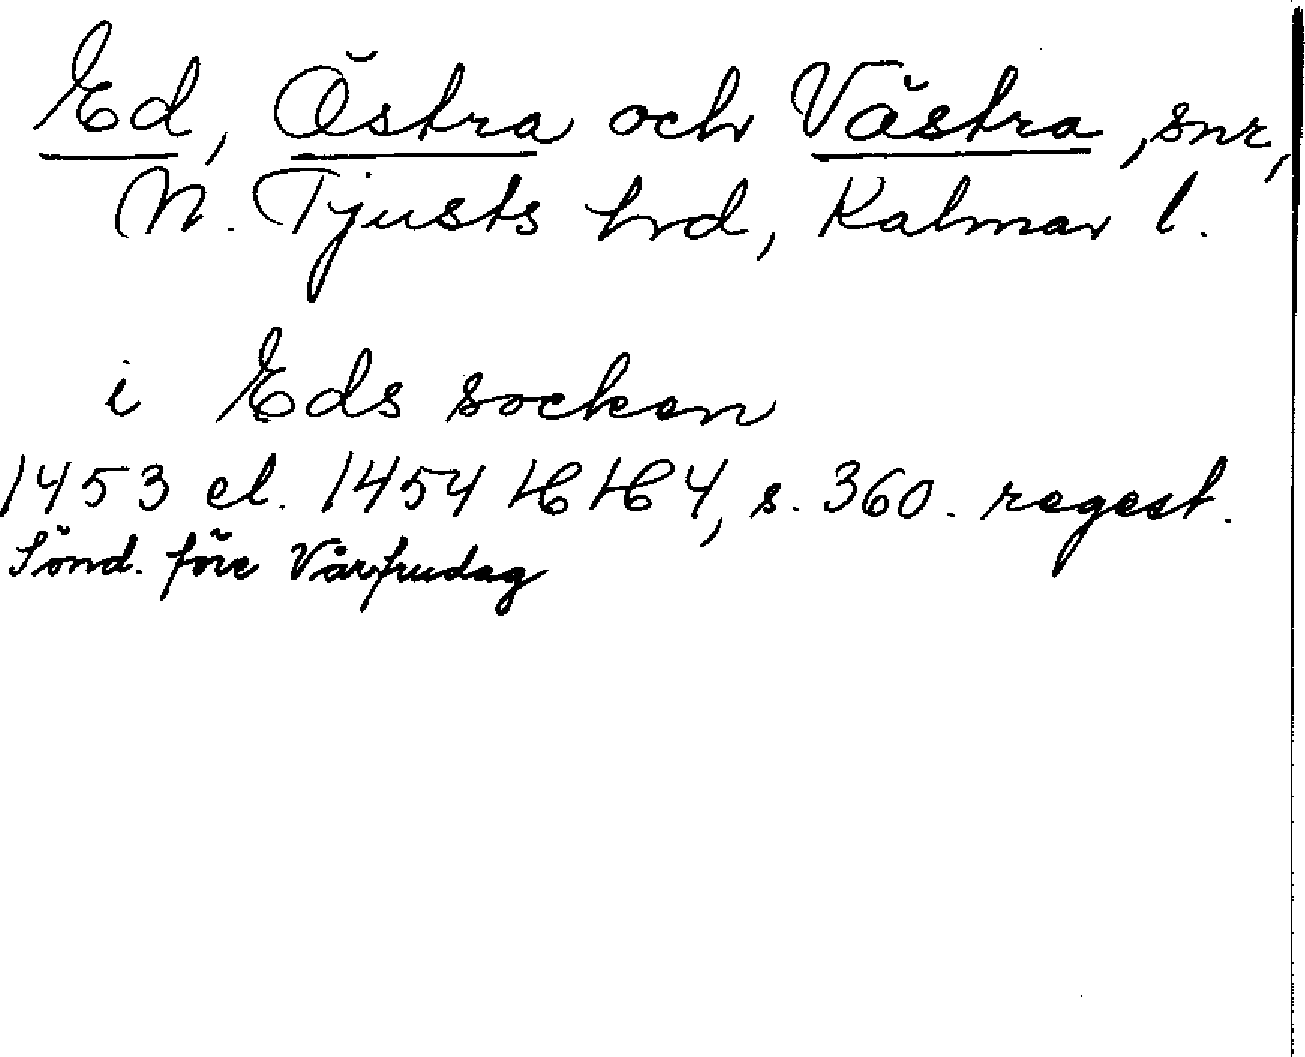 Ed, Östra och Västra, snr,
N. Tjusts hrd, Kalmar l.
i Eds socken
1453 el. 1454 HH 4, s. 360. regest.
Sönd. före Vårfrudag